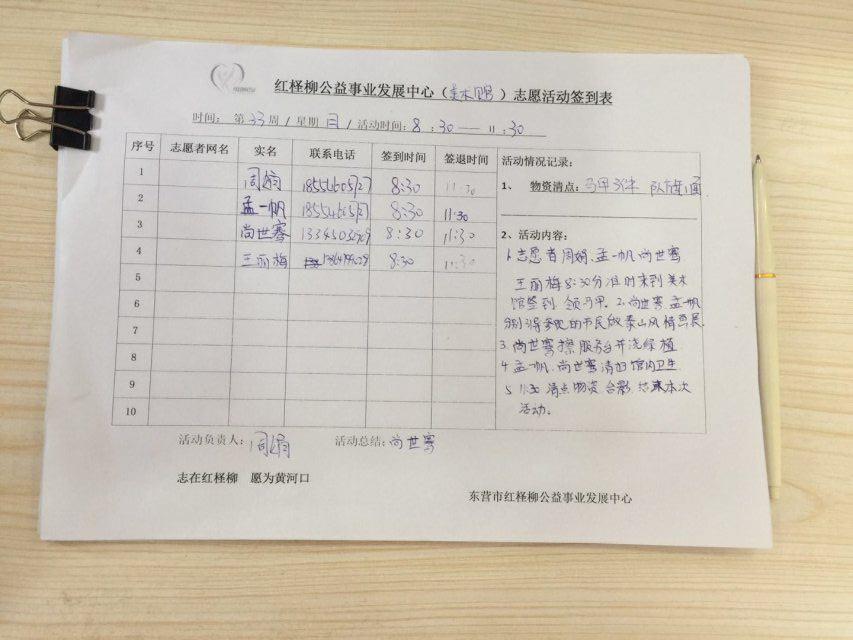 红柽柳公益事业发展中心（美术馆）志愿活动签到表
时间：第33周/星期日/活动时间：8:30—11:30
序号 志愿者网名 实名 联系电话 签到时间 签退时间 活动情况记录：
1 周娟 8:30 11:30
1、物资清点：马甲 队旗1面
2 孟一帆 8:30 11:30
3 尚世骞 8:30 11:30
2、活动内容：
4 王丽梅 8:30 11:30
1.志愿者周娟.孟一帆.尚世骞
5
王丽梅8:30分准时来到美术
6
馆签到.领马甲.2.尚世骞.孟一帆
7
引导参观的市民 泰山风情画展
8
3.尚世骞擦服务台并浇绿植
9
4.孟一帆.尚世骞清扫馆内卫生
5.11:30清点物资.合影.结束本次
10
活动。
活动负责人：周娟 活动总结：尚世骞
志在红柽柳 愿为黄河口
东营市红柽柳公益事业发展中心